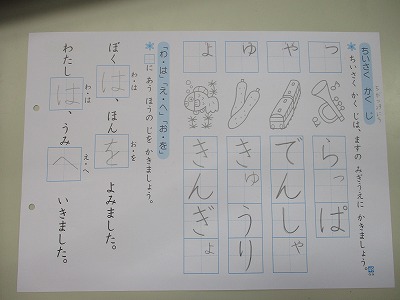 ちいさく かく じ
ちいさく かく じは、ますの みぎうえに かきましょう。
っ
ゃ
ゅ
ょ
らっぱ
でんしゃ
きゅうり
きんぎょ
「わ・は」「え・へ」「お・を」
□に あう ほうの じを かきましょう。
ぼくは、ほんを よみました。
わ・は
お・を
わたしは、うみへ いきました。
わ・は
え・へ